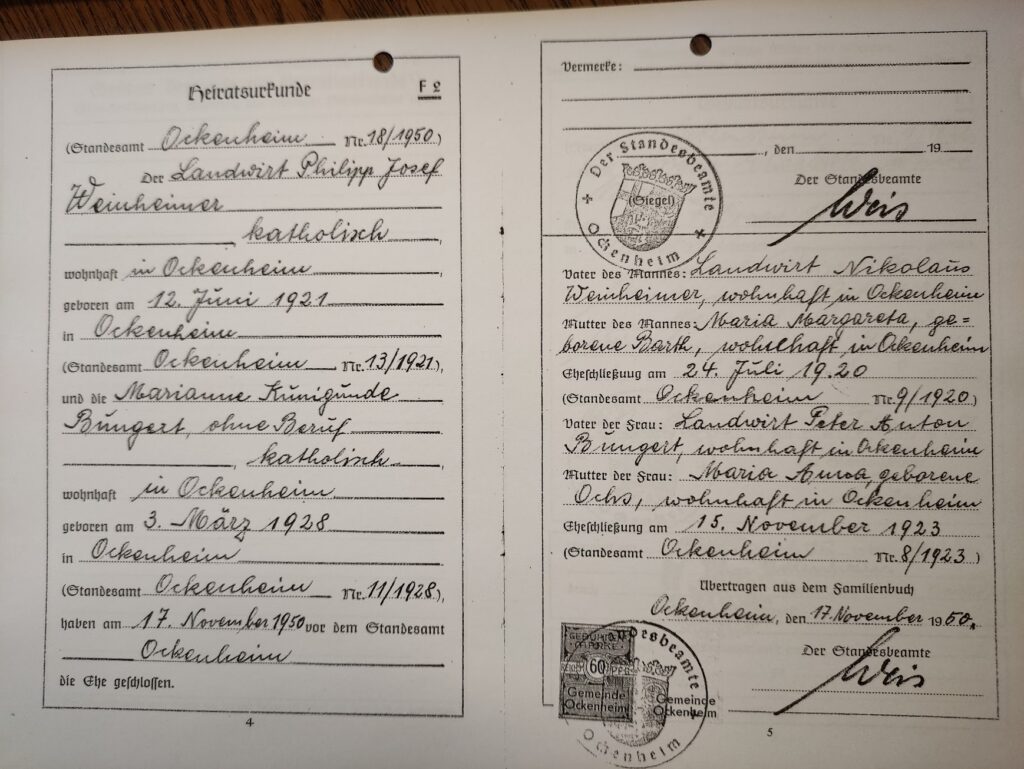 Heiratsurkunde F 2
(Standesamt Ockenheim Nr. 18/1950)
Der Landwirt Philipp Josef
Weinheimer
, katholisch ,
wohnhaft in Ockenheim
geboren am 12. Juni 1921
in Ockenheim
(Standesamt Ockenheim Nr. 13/1921),
und die Marianne Kunigunde
Bungert, ohne Beruf
, katholisch ,
wohnhaft in Ockenheim
geboren am 3. März 1928
in Ockenheim
(Standesamt Ockenheim Nr. 11/1928),
haben am 17. November 1950 vor dem Standesamt
Ockenheim
die Ehe geschlossen.
4
Vermerke:
, den 19
Der Standesbeamte
Weis
Der Standesbeamte
(Siegel)
Ockenheim
Vater des Mannes: Landwirt Nikolaus
Weinheimer, wohnhaft in Ockenheim
Mutter des Mannes: Maria Margareta, ge=
borene Barth, wohnhaft in Ockenheim
Eheschließung am 24. Juli 1920
(Standesamt Ockenheim Nr. 9/1920)
Vater der Frau: Landwirt Peter Anton
Bungert, wohnhaft in Ockenheim
Mutter der Frau: Maria Anna, geborene
Ochs, wohnhaft in Ockenheim
Eheschließung am 15. November 1923
(Standesamt Ockenheim Nr. 8/1923)
Übertragen aus dem Familienbuch
Ockenheim, den 17. November 1950.
Der Standesbeamte
Weis
60
Gemeinde
Ockenheim
Gemeinde
Ockenheim
Ockenheim
5